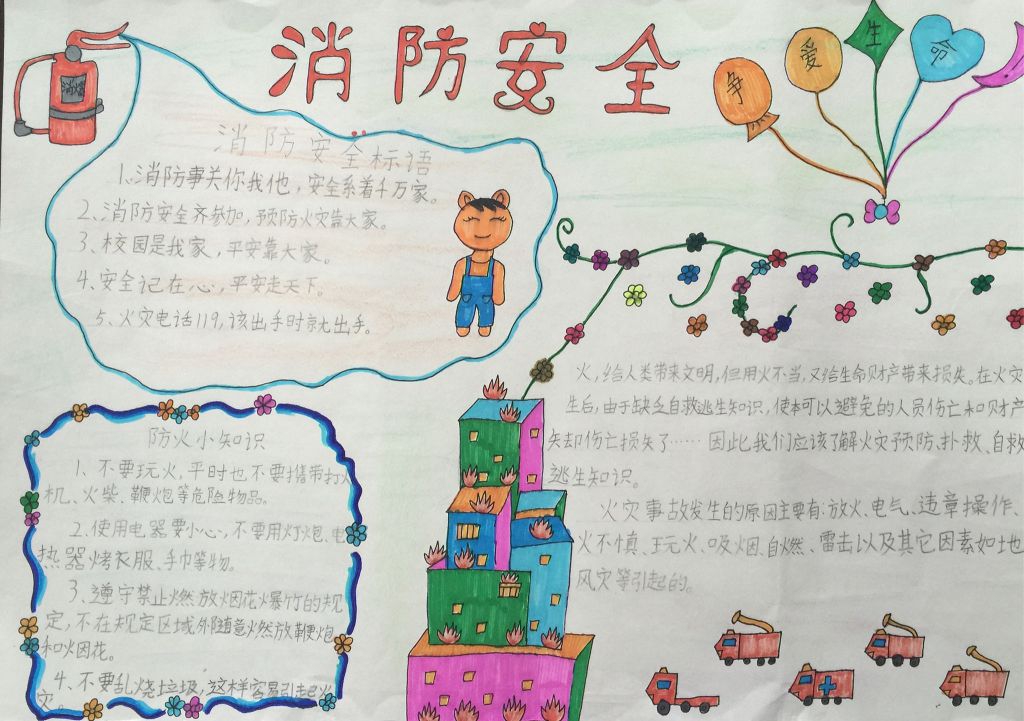 消防安全
消防
争
爱
生
命
消防安全标语
1.消防事关你我他，安全系着千万家。
2、消防安全齐参加，预防火灾靠大家。
3、校园是我家，平安靠大家。
4、安全记在心，平安走天下。
5、火灾电话119，该出手时就出手。
火，给人类带来文明，但用火不当，又给生命财产带来损失。在火灾
生后，由于缺乏自救逃生知识，使本可以避免的人员伤亡和财产
失却伤亡损失了……因此我们应该了解火灾预防、扑救、自救
逃生知识。
火灾事故发生的原因主要有：放火、电气、违章操作、
火不慎、玩火、吸烟、自燃、雷击以及其它因素如地
风灾等引起的。
防火小知识
1、不要玩火，平时也不要携带打火
机、火柴、鞭炮等危险物品。
2、使用电器要小心，不要用灯炮、电
热器烤衣服、手巾等物。
3、遵守禁止燃放烟花爆竹的规
定，不在规定区域外随意燃放鞭炮
和烟花。
4、不要乱烧垃圾，这样容易引起火
灾。